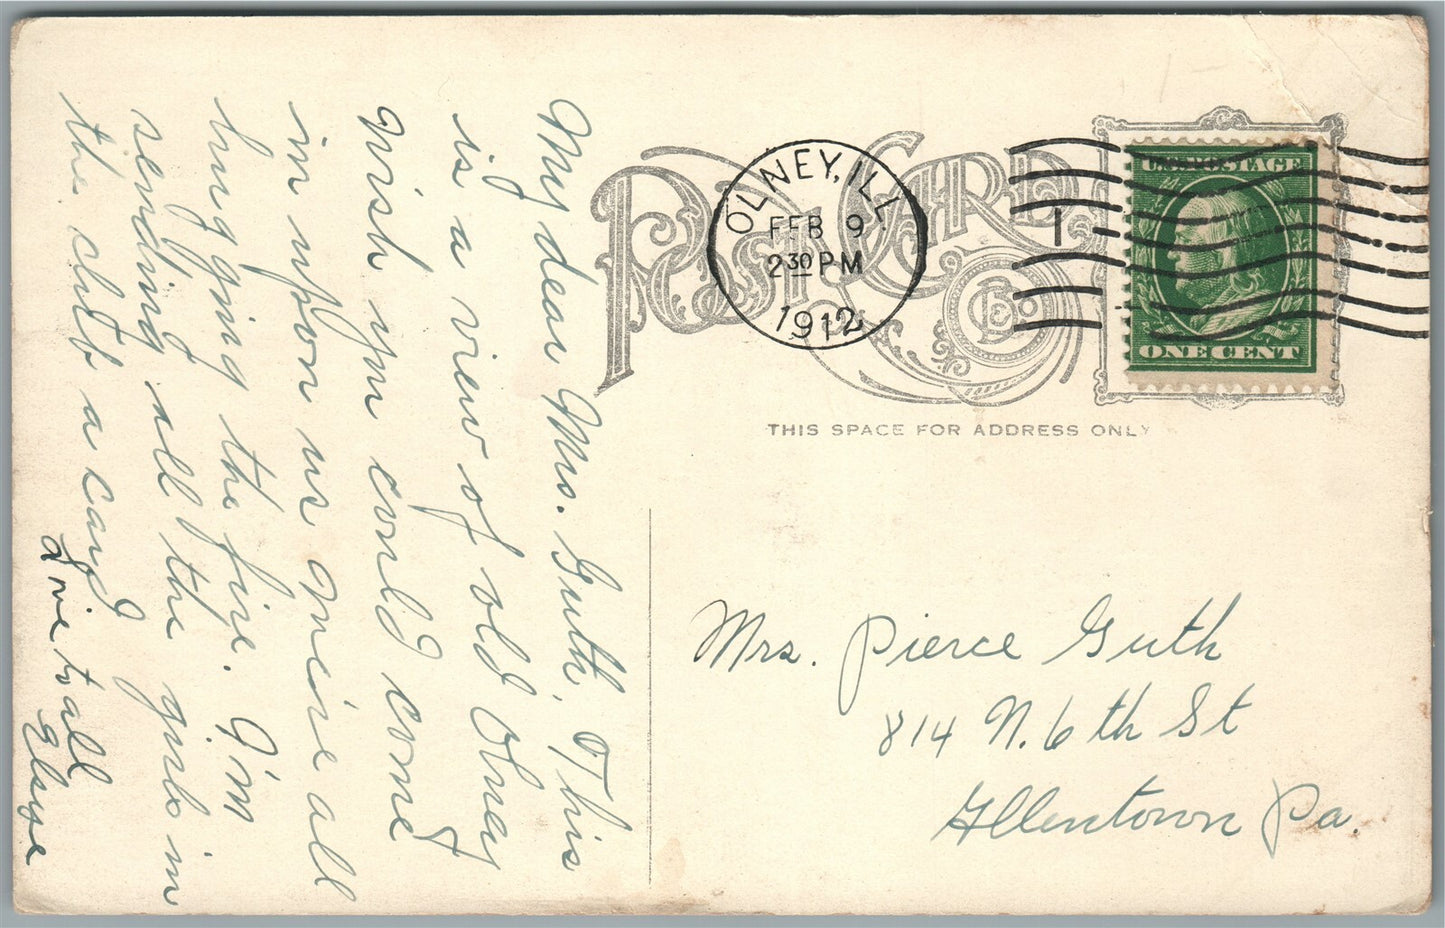 My dear Mrs. Guth, This
is a view of old Olney
Wish you could come
in upon us we're all
hugging the fire. I'm
sending all the girls in
the club a card
Love to all
Elsye
POST CARD
THIS SPACE FOR ADDRESS ONLY
OLNEY, ILL.
FEB 9
2 30 PM
1912
1
U.S. POSTAGE
ONE CENT
Mrs. Pierce Guth
814 N. 6th St
Allentown Pa.